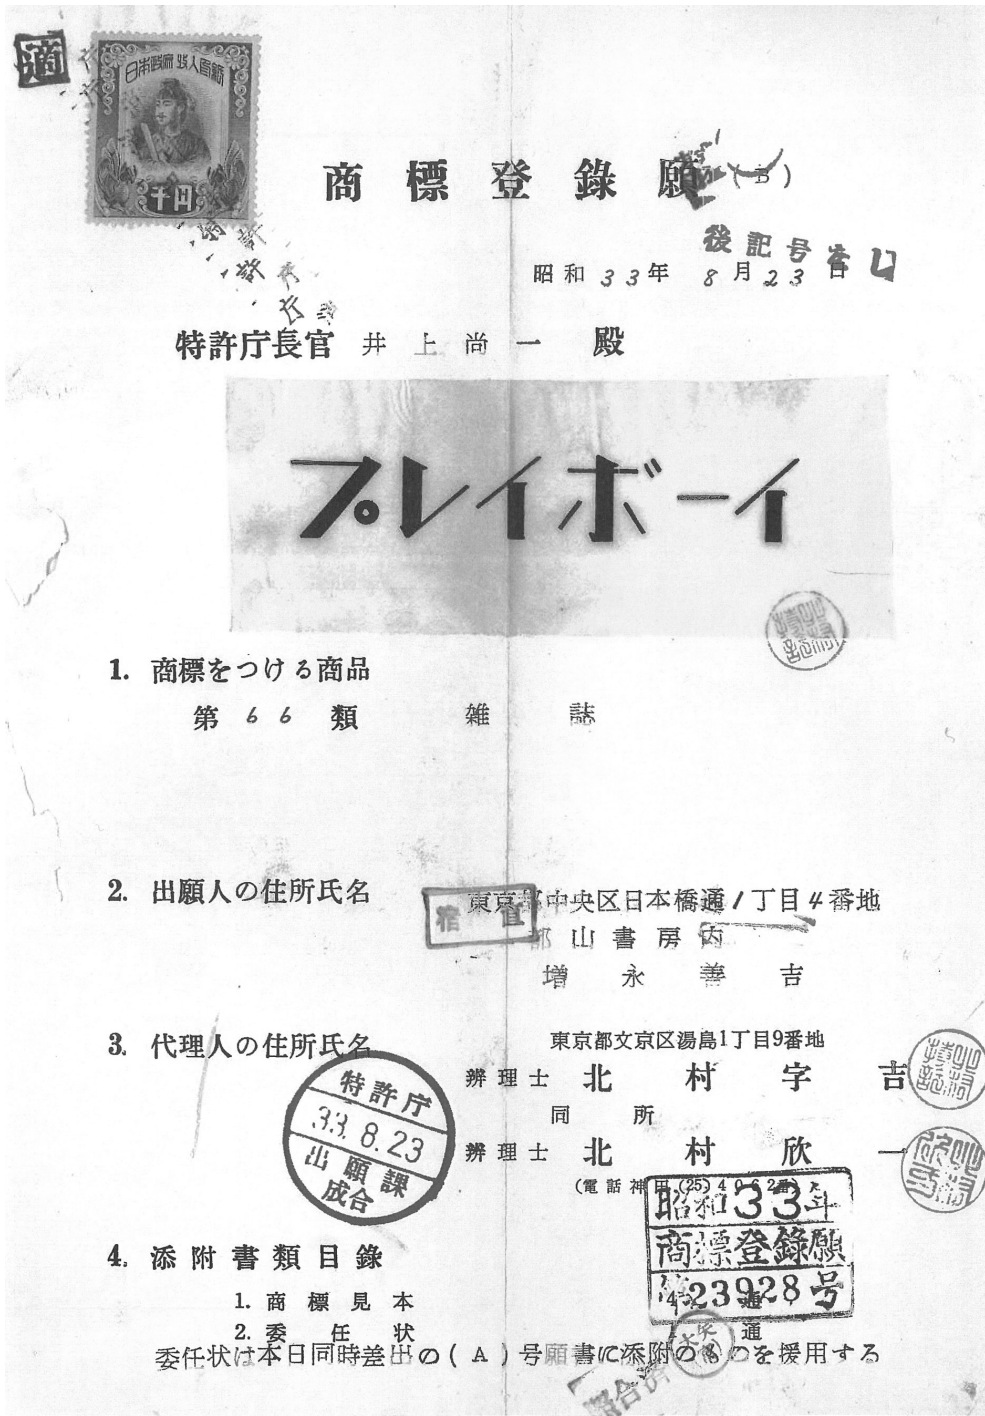 適
日本政府収入印紙
千円
商標登錄願 (B)
後記号
昭和33年 8月23日
特許庁長官 井上尚一 殿
プレイボーイ
1. 商標をつける商品
第66類 雑誌
2. 出願人の住所氏名
東京都中央区日本橋通1丁目4番地
宿直
都山書房内
増永善吉
3. 代理人の住所氏名
東京都文京区湯島1丁目9番地
辨理士 北村字吉
同所
辨理士 北村欣一
(電話神田(25)4062番)
特許庁
33.8.23
出願課
成合
昭和33年
商標登錄願
第23928号
4. 添附書類目錄
1. 商標見本 通
2. 委任状 通
委任状は本日同時差出の(A)号願書に添附のものを援用する
照合済